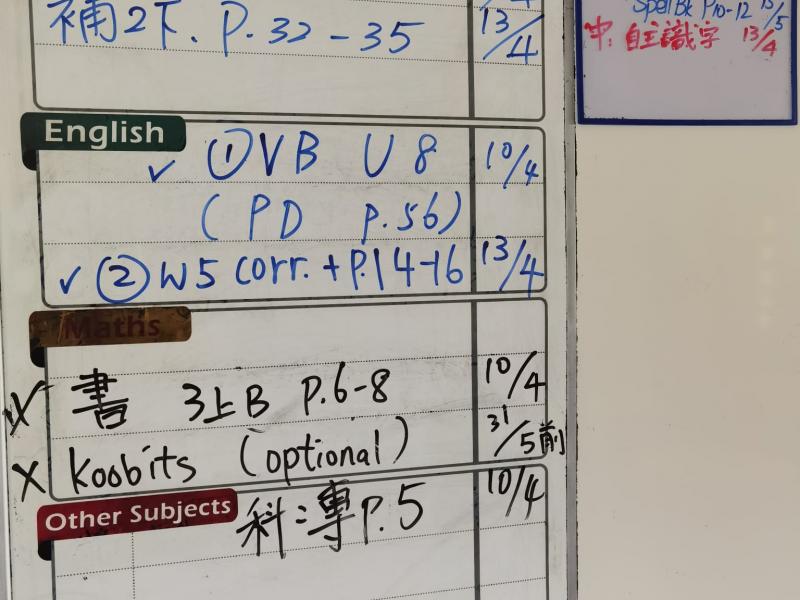 補2下. P.32-35 13/4
English
✓ ①VB U 8 10/4
(PD p.56)
✓ ② W5 corr. + P.14-16 13/4
Maths
書 3上B P.6-8 10/4
X koobits (optional) 31/5前
Other Subjects
科:專P.5 10/4
SpellBk P10-12 13/5
中: 自主識字 13/4